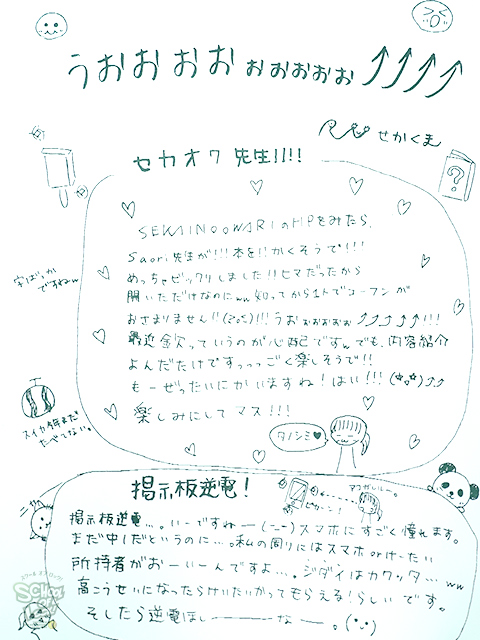 うおおおおぉぉぉぉぉ⤴⤴⤴⤴
せかくま
セカオワ 先生!!!!
SEKAI NO OWARI のHPをみたら、
Saori先生が!!!本を!!かくそうで!!!
めっちゃビックリしました!!ヒマだったから
開いただけなのにww知ってから1人でコーフンが
おさまりません!!
!!!うおぉぉぉぉぉ⤴⤴⤴⤴!!!
最近金欠っていうのが心配ですw でも、内容紹介
よんだだけですっっっごく楽しそうで!!
もーぜったいにかいますね!はい!!!
楽しみにしてマス!!!
字ばっか
ですねw
スイカ今年まだ
たべてない。
タノシミ♥
掲示板逆電!
ピローン!
掲示板逆電…。いーですねー(ーー)スマホにすごく憧れます。
まだ中1だというのに…。私の周りにはスマホorけーたい
所持者がおーいーんですよ…。ジダイはカワッタ…ww
高こうせいになったらけいたいかってもらえる!らしいです。
そしたら逆電ほしーーーーなー。
SCHOOL